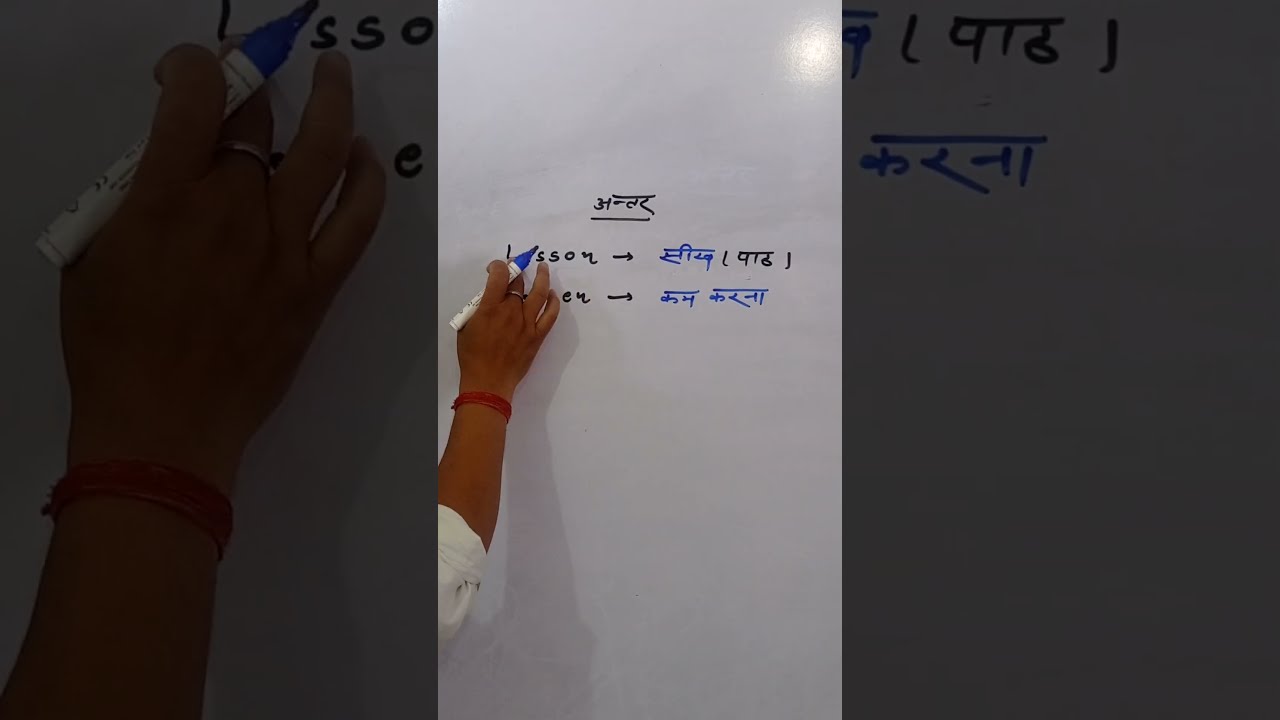 अन्तर
Lesson → सीख (पाठ)
en → कम करना